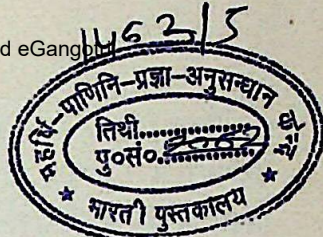 d eGangotri
11631/5
महर्षि-पाणिनि-प्रज्ञा-अनुसन्धान केन्द्र
तिथी............
पु०सं०............
* भारती पुस्तकालय *